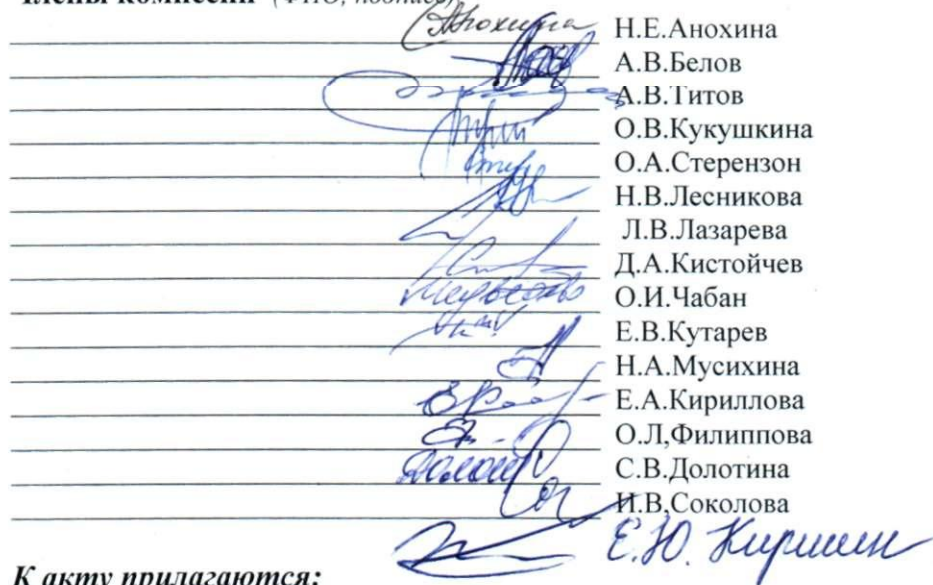 Члены комиссии (ФИО, подпись)
Анохина Н.Е.Анохина
А.В.Белов
А.В.Титов
О.В.Кукушкина
О.А.Стерензон
Н.В.Лесникова
Л.В.Лазарева
Д.А.Кистойчев
О.И.Чабан
Е.В.Кутарев
Н.А.Мусихина
Е.А.Кириллова
О.Л,Филиппова
С.В.Долотина
И.В,Соколова
Е.Ю. Киршин
К акту прилагаются: